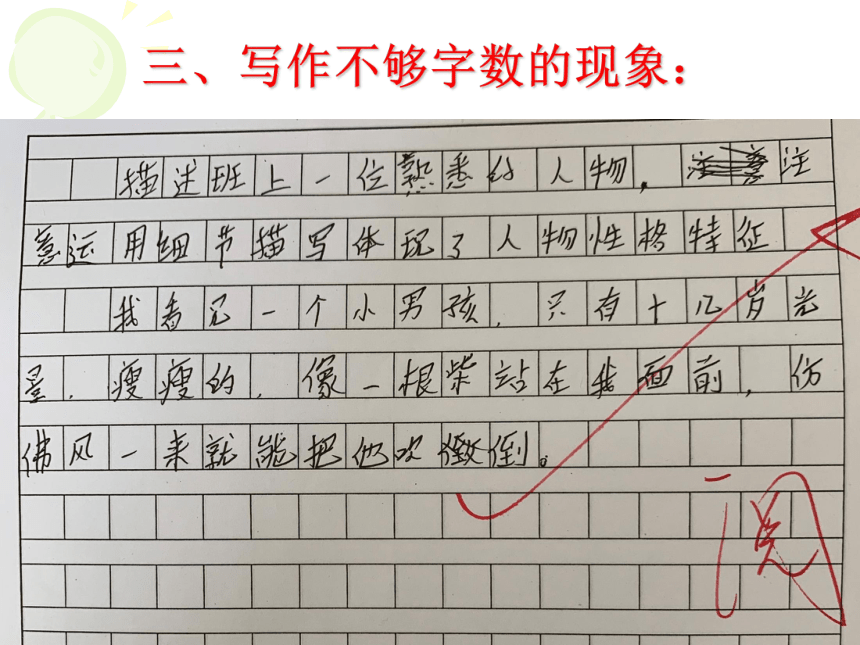 三、写作不够字数的现象：
描述班上一位熟悉的人物，注意注
意运用细节描写体现了人物性格特征
我看见一个小男孩，只有十几岁光
景，瘦瘦的，像一根柴站在我面前，仿
佛风一来就能把他吹倒。
阅